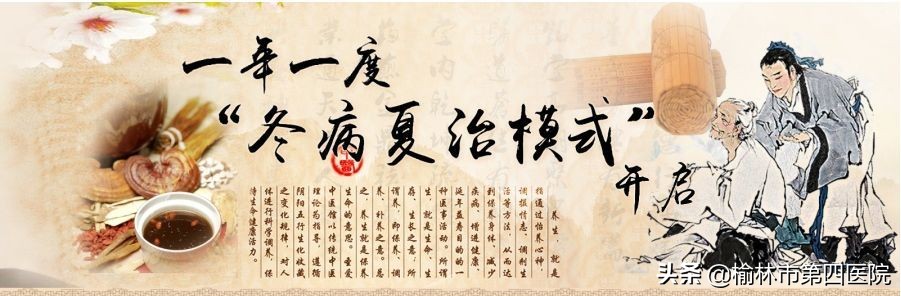 一年一度
“冬病夏治模式”
开启
养生，就是
指通过怡养心神，
调摄情志、调剂生
活等方法，从而达
到保养身体、减少
疾病、增进健康、
延年益寿目的的一
种医事活动。所谓
生，就是生命、生
存、生长之意；所
谓养，即保养、调
养、补养之意。总
之，养生就是保养
生命的意思。圣爱
中医馆以传统中医
理论为指导，遵循
阴阳五行生化收藏
之变化规律，对人
体进行科学调养，保
持生命健康活力。
头条 @榆林市第四医院